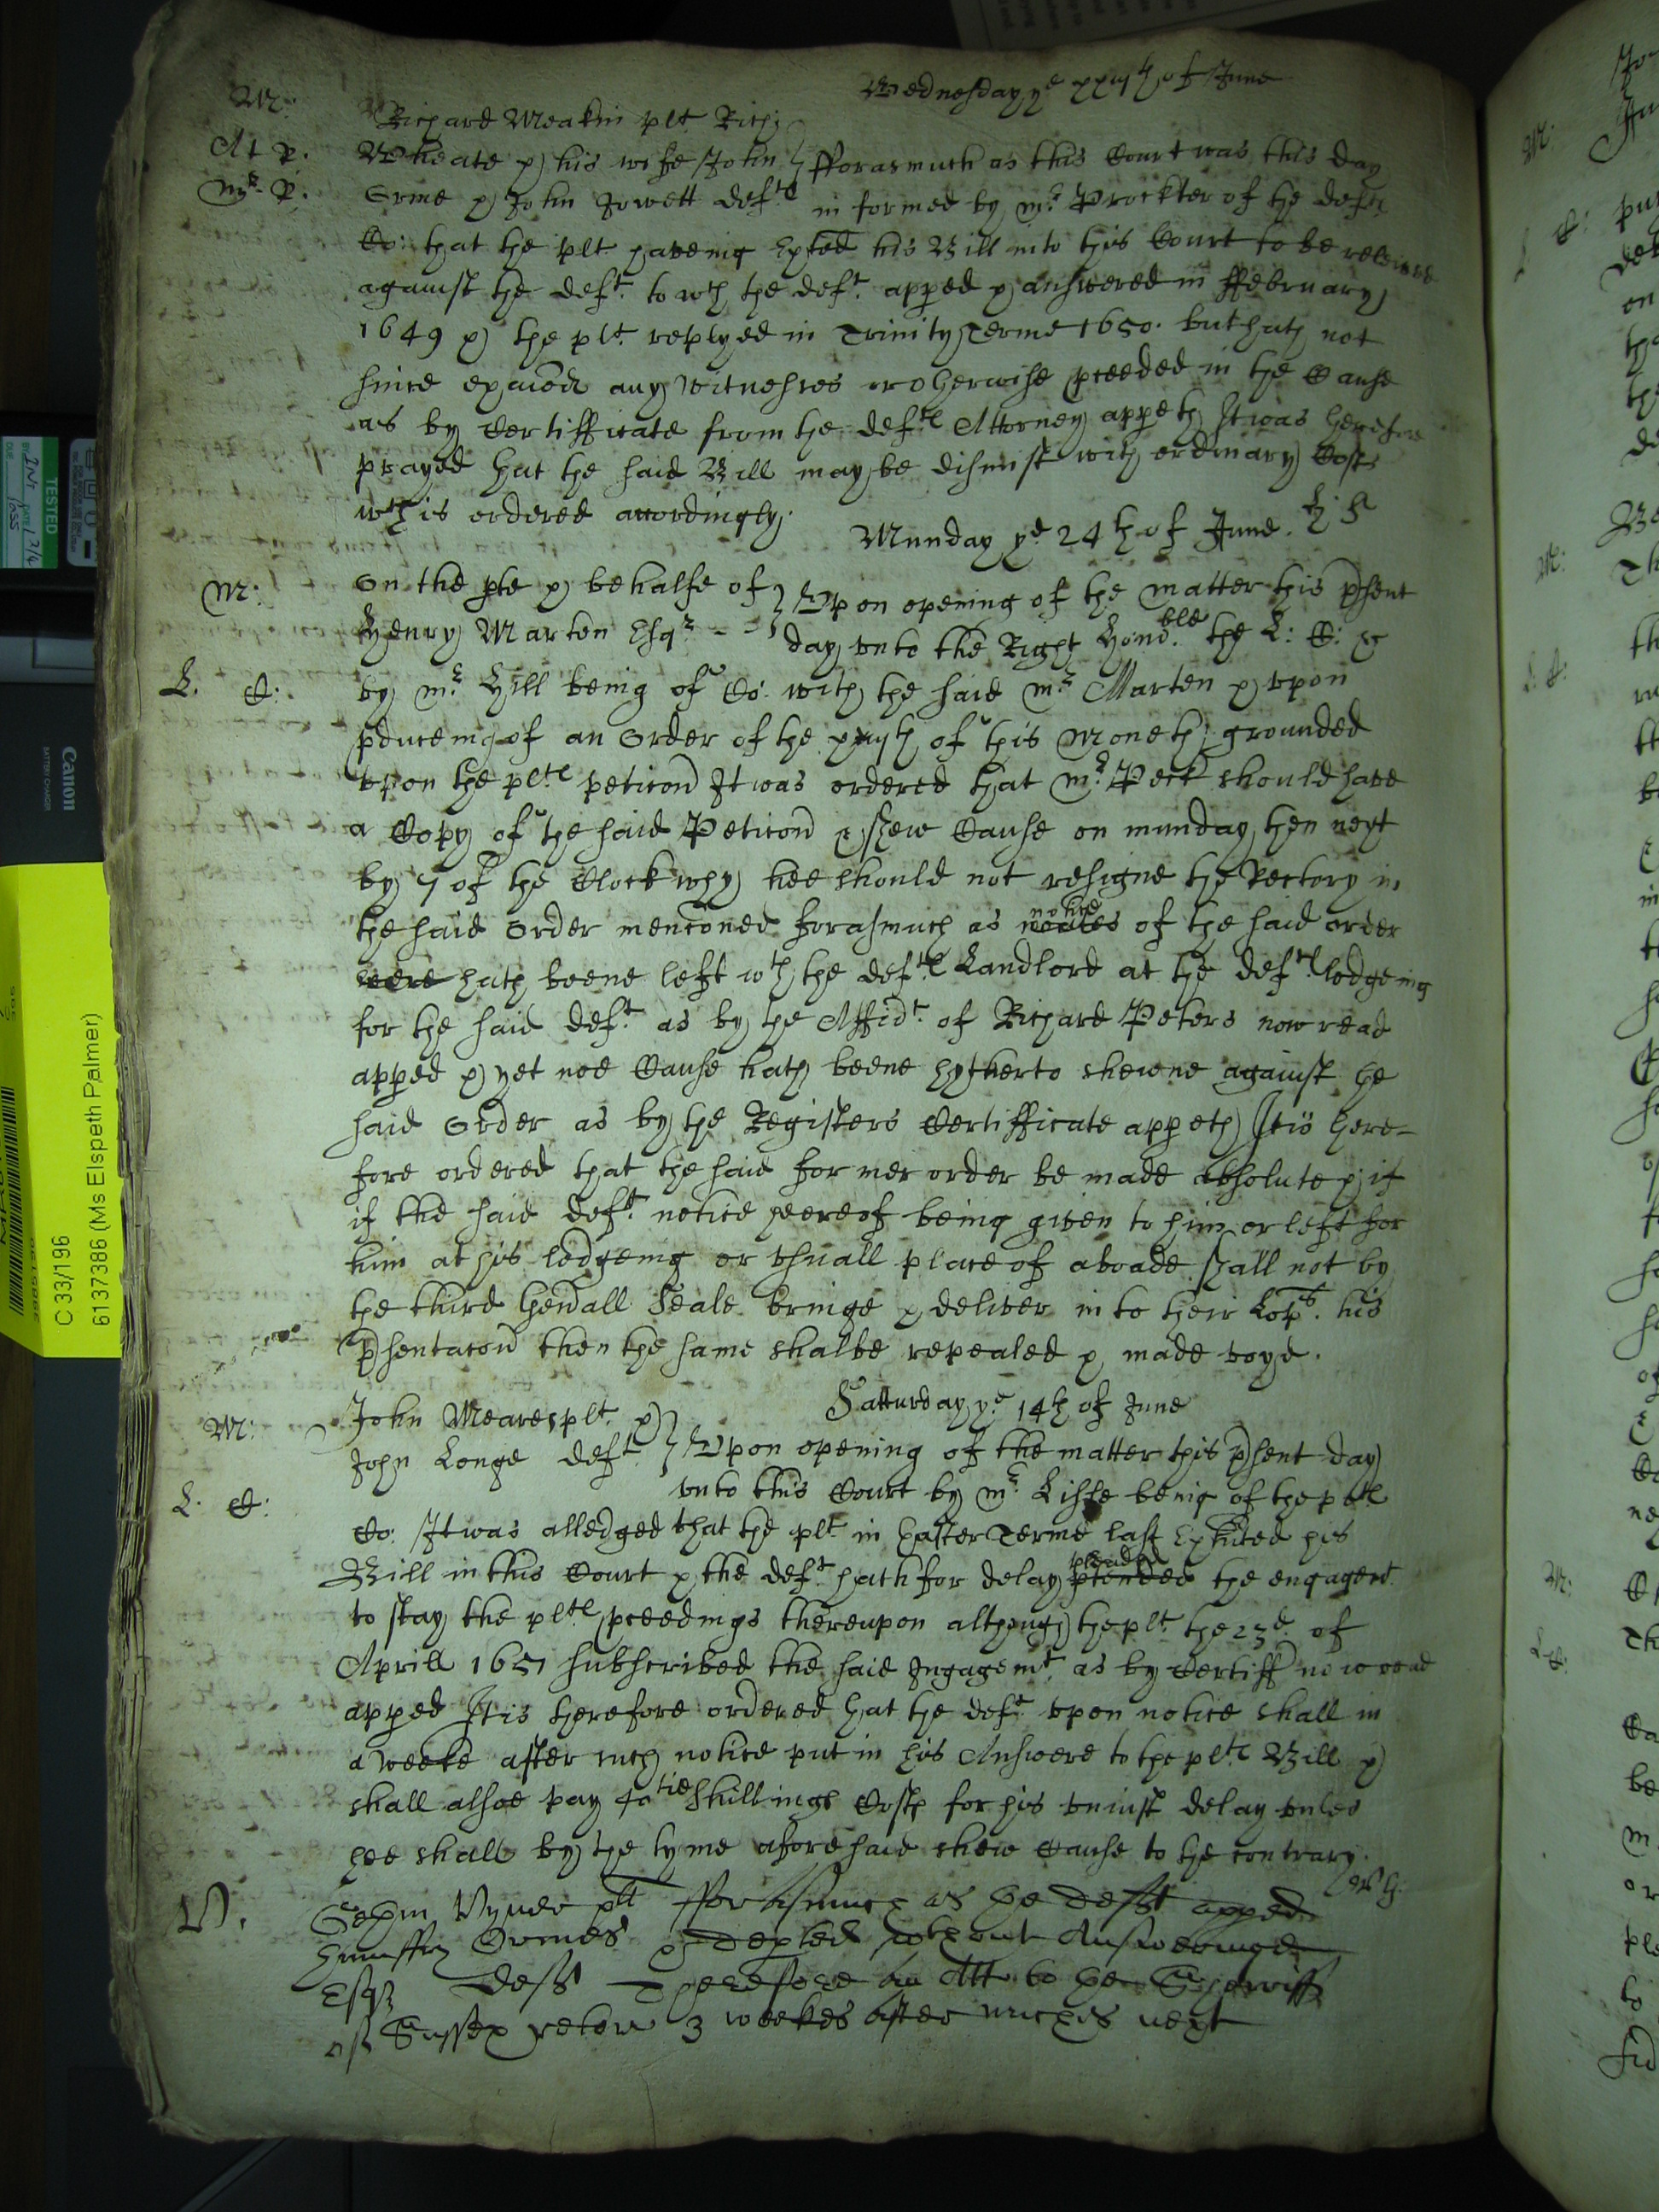 Wednesday ye of June
M:
Richard Meakin plt Rich:
At p.
Wheate & his wife John } fforasmuch as this Court was this day
mr p.
Orme & John Jowett deftes informed by mr Prockter of the deftes
Co: that the plt haveing exhted his Bill into this Court to be releived
against the deft. to wch the deft. apped & answered in ffebruary
1649 & the plt. replyed in Trinity Terme 1650. but hath not
since exaiõed any witnesses or otherwise pceeded in the Cause
as by Certifficate from the deftes Attorney appeth It was therefore
prayed that the said Bill may be dismist with ordinary Costs
wch is ordered accordingly.
Munday ye 24th of June.
M:
On the pte & behalfe of } Upon opening of the matter this psent
Henry Marten Esqr - - } day unto the Right Honoble the L: C: &c
L. C:
by mr Hill being of Co: with the said mr Marten & upon
pduceing of an Order of the of this Moneth grounded
upon the pltes peticon It was ordered that mr Peck should have
a Copy of the said Peticon & shew Cause on munday then next
by 7 of the Clock why hee should not resigne the Rectory in
the said Order menconed forasmuch as notice of the said order
were hath beene left wth the deftes Landlord at the deftes lodgeing
for the said deft. as by the Affidt. of Richard Peters now read
apped & yet noe Cause hath beene hytherto shewne against the
said Order as by the Registers Certifficate appeth It is there-
fore ordered that the said former order be made absolute & if
if the said deft. notice hereof being given to him or left for
him at his lodgeing or usuall place of aboade shall not by
the third Genãll Seale bringe & deliver in to their Lopps. his
psentacon then the same shalbe repealed & made voyd.
Satturday ye 14th of June
M:
John Meares plt. &
John Longe deft. } Upon opening of the matter this psent day
unto this Court by mr Lisle being of the pltes
L. C:
Co: It was alledged that the plt. in Easter Terme last exhited his
Bill in this Court & the deft hath for delay pleaded ptended the engagent
to stay the pltes pceedings thereupon although the plt. the 23d. of
Aprill 1651 subscribed the said Ingagemt. as by Certiff now read
apped It is therefore ordered that the deft upon notice shall in
a weeke after such notice put in his Answere to the pltes Bill &
shall alsoe pay 40tie shillings Costs for his uniust delay unles
hee shall by the tyme aforesaid shew Cause to the contrary.
V.
Vyner plt fforasmuch as the deft apped
Humffry Ormes & depted wthout Answeringe
Esqr deft Therefore an Att to the Sherriff
of Sussex retorn 3 weekes after Michis next
TESTED
Canon
BATTERY CHARGER
C 33/196
6137386 (Ms Elspeth Palmer)